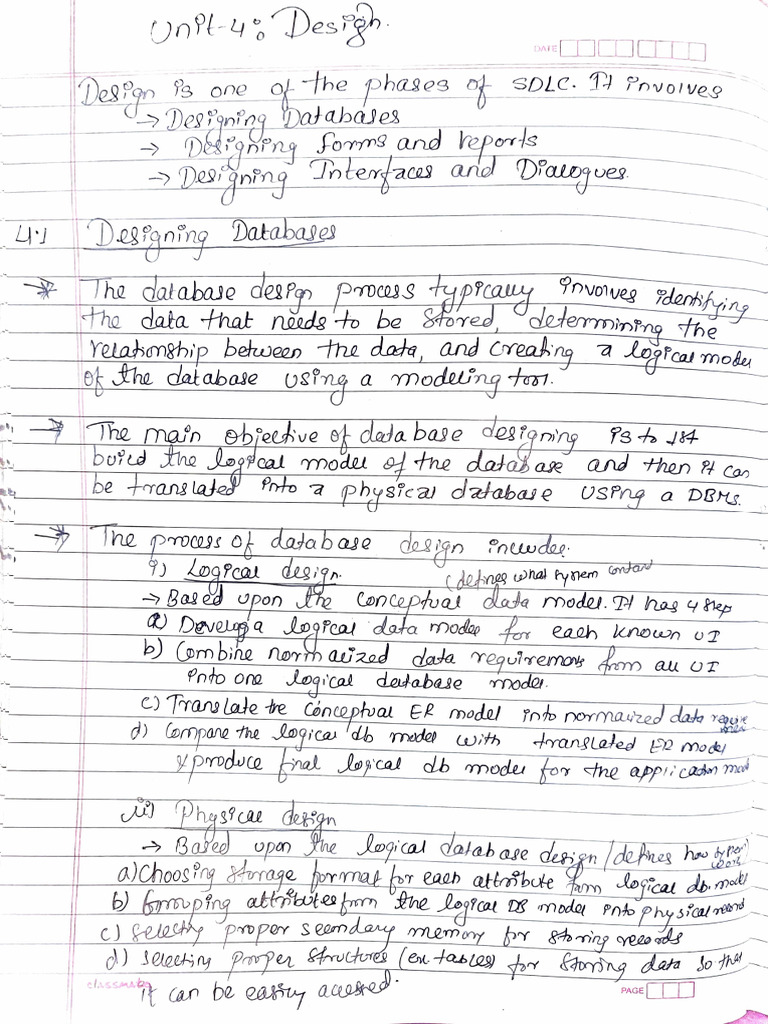 Unit-4: Design.
DATE
Design is one of the phases of SDLC. It involves
→ Designing Databases
→ Designing forms and reports
→ Designing Interfaces and Dialogues.
4.1 Designing Databases
→ The database design process typically involves identifying
the data that needs to be stored, determining the
relationship between the data, and creating a logical model
of the database using a modeling tool.
→ The main objective of database designing is to 1st
build the logical model of the database and then it can
be translated into a physical database using a DBMS.
→ The process of database design includes:
i) Logical design. (defines what system contain
→ Based upon the conceptual data model. It has 4 step
a) Develop a logical data model for each known UI
b) Combine normalized data requirements from all UI
into one logical database model.
c) Translate the conceptual ER model into normalized data require
ment
d) Compare the logical db model with translated ER model
& produce final logical db model for the application
ii) Physical design
→ Based upon the logical database design / defines how system
work
a) Choosing storage format for each attribute from logical db. model
b) Grouping attributes from the logical DB model into physical record
c) Selectig proper secondary memory for storing records
d) Selecting proper structures (ex: tables) for storing data so that
it can be easily accessed.
classmate
PAGE